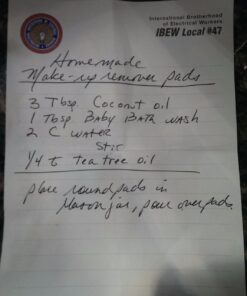 International Brotherhood
of Electrical Workers
IBEW Local #47
Homemade
Make-up remover pads
3 Tbsp. Coconut oil
1 Tbsp Baby Bath wash
2 C Water
Stir
1/4 t tea tree oil
place round pads in
Mason jar, pour over pads.